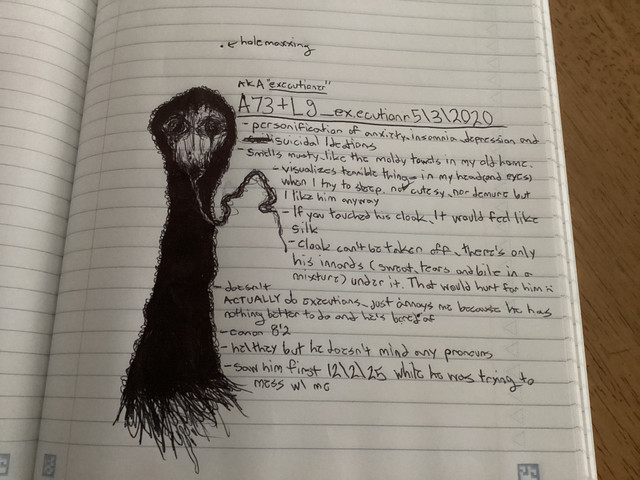 . ← holemaxxing
AKA "executioner"
A73+Lg_ex.ecutionr5|3|2020
- personification of anxiety, insomnia, depression and
suicidal Ideations
- smells musty, like the moldy towels in my old home.
- visualizes terrible things in my head (and eyes)
when I try to sleep. not cutesy, nor demure but
I like him anyway
- If you touched his cloak, It would feel like
silk
- cloak can't be taken off, there's only
his innards (sweat, tears and bile in a
mixture) under it. That would hurt for him
- doesn't
ACTUALLY do executions, just annoys me because he has
nothing better to do and he's bored af
- canon 8'2
- he/they but he doesn't mind any pronouns
- saw him first 12|2|25 while he was trying to
mess w/ me